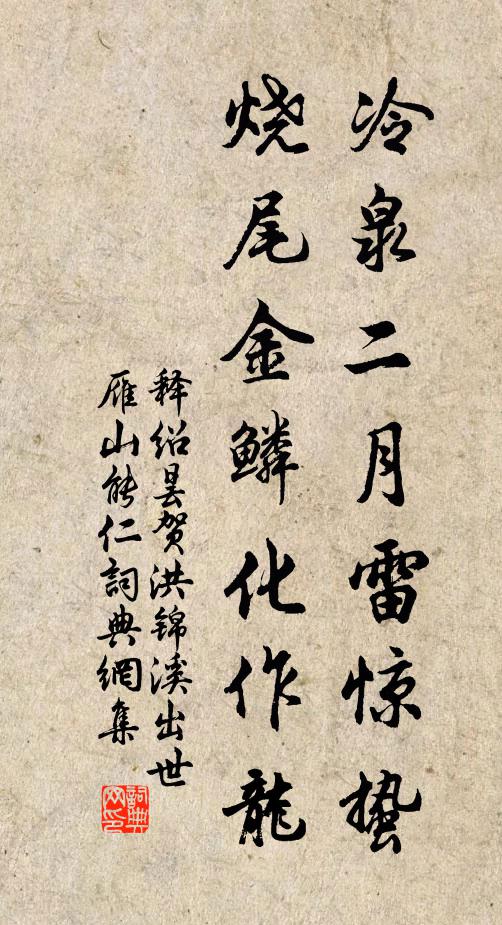 冷泉二月雷惊蛰
烧尾金鳞化作龙
释绍昙贺洪锦溪出世
雁山能仁詞典網集
詞典网印